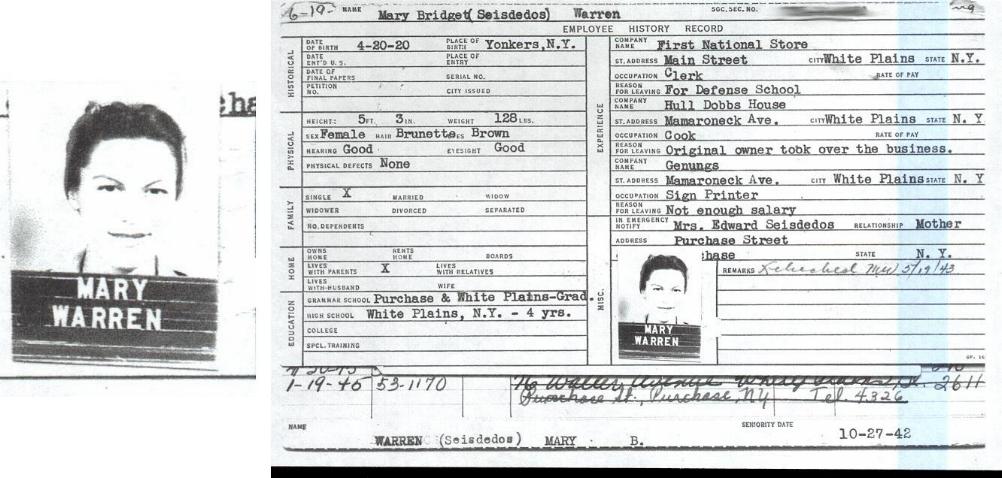 ha
MARY
WARREN
6-19- NAME Mary Bridget( Seisdedos) Warren SOC. SEC. NO.
EMPLOYEE HISTORY RECORD
HISTORICAL
DATE OF BIRTH 4-20-20 PLACE OF BIRTH Yonkers,N.Y.
DATE ENT'D U.S. PLACE OF ENTRY
DATE OF FINAL PAPERS SERIAL NO.
PETITION NO. CITY ISSUED
PHYSICAL
HEIGHT: 5 FT. 3 IN. WEIGHT 128 LBS.
SEX Female HAIR Brunette Brown
HEARING Good EYESIGHT Good
PHYSICAL DEFECTS None
FAMILY
SINGLE X MARRIED WIDOW
WIDOWER DIVORCED SEPARATED
NO. DEPENDENTS
HOME
OWNS HOME RENTS HOME BOARDS
LIVES WITH PARENTS X LIVES WITH RELATIVES
LIVES WITH HUSBAND WIFE
EDUCATION
GRAMMAR SCHOOL Purchase & White Plains-Grad.
HIGH SCHOOL White Plains, N.Y. - 4 yrs.
COLLEGE
SPCL. TRAINING
EXPERIENCE
COMPANY NAME First National Store
ST. ADDRESS Main Street CITY White Plains STATE N.Y.
OCCUPATION Clerk RATE OF PAY
REASON FOR LEAVING For Defense School
COMPANY NAME Hull Dobbs House
ST. ADDRESS Mamaroneck Ave. CITY White Plains STATE N. Y
OCCUPATION Cook RATE OF PAY
REASON FOR LEAVING Original owner tobk over the business.
COMPANY NAME Genungs
ST. ADDRESS Mamaroneck Ave. CITY White Plains STATE N. Y
OCCUPATION Sign Printer
REASON FOR LEAVING Not enough salary
MISC.
IN EMERGENCY NOTIFY Mrs. Edward Seisdedos RELATIONSHIP Mother
ADDRESS Purchase Street
chase STATE N. Y.
REMARKS 5/19/43
MARY
WARREN
1-19-46 53-1170 Walter Avenue White 2611
Purchase St., Purchase, NY Tel. 4326
NAME SENIORITY DATE
WARREN (Seisdedos) MARY B. 10-27-42